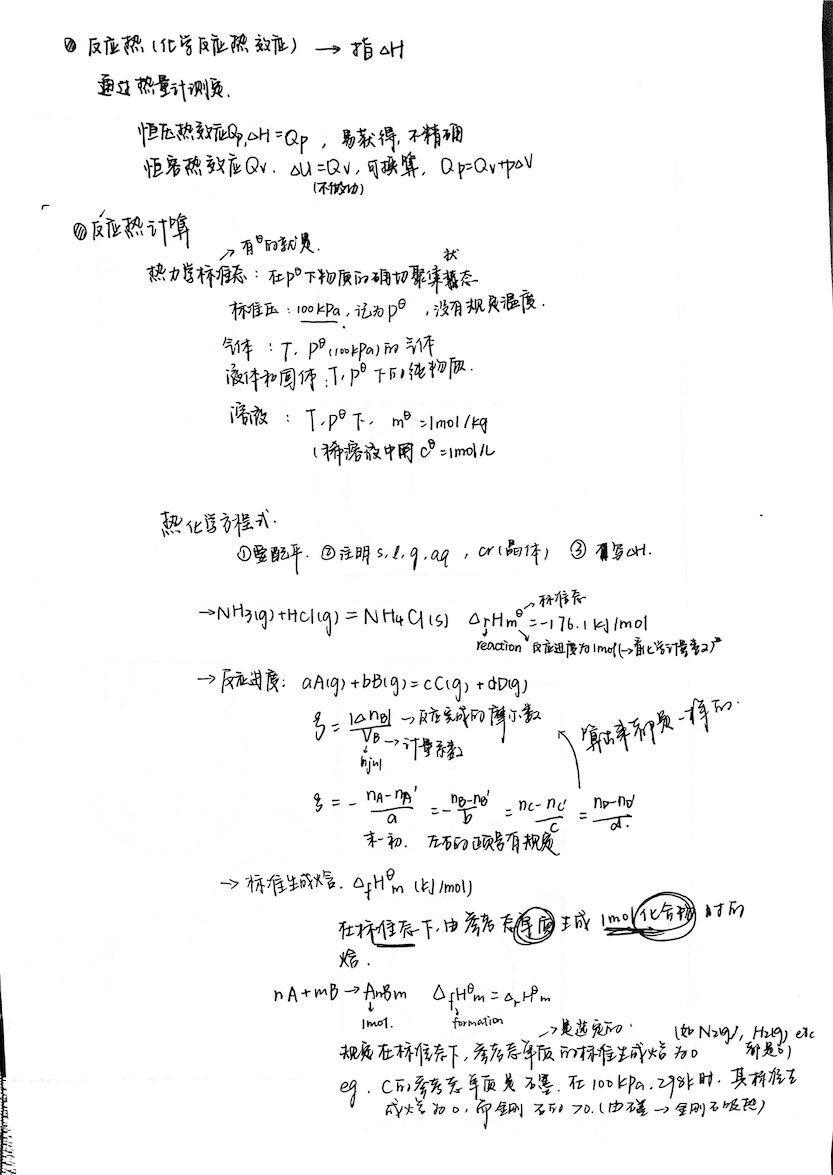 反应热(化学反应热效应) → 指△H
通过热量计测定.
恒压热效应Qp,△H=Qp , 易获得,不精确
恒容热效应Qv. △U=Qv,可换算, Qp=Qv+p△V
(不做功)
反应热计算
→有θ的就是.
状
热力学标准态:在pθ下物质的确切聚集态
标准压:100kPa,记为pθ ,没有规定温度.
气体 : T, pθ(100kPa)的气体
液体和固体:T,pθ下的纯物质.
溶液 : T,pθ下, mθ=1mol/kg
(稀溶液中用cθ=1mol/L
热化学方程式.
①要配平. ②注明s,l,g,aq , cr(晶体) ③写△H.
→标准态
→NH3(g)+HCl(g)=NH4Cl(s) △rHmθ=-176.1kJ/mol
reaction 反应进度为1mol(→看化学计量数)
→反应进度: aA(g)+bB(g)=cC(g)+dD(g)
ξ=|△nB|/VB →反应完成的摩尔数
→计量系数
算出来都是一样的.
ξ=-(nA-nA')/a=-(nB-nB')/b=(nC-nC')/c=(nD-nD')/d.
末-初. 左右的正负号有规定
→标准生成焓. △fHθm (kJ/mol)
在标准态下,由参考态单质生成1mol化合物时的
焓.
nA+mB→AnBm △fHθm=△rHθm
1mol. formation
→是选定的. (如N2(g), H2(g) etc
规定在标准态下,参考态单质的标准生成焓为0 都是0)
eg. C的参考态单质是石墨. 在100kPa,298k时,其标准生
成焓为0,而金刚石的>0.(由石墨→金刚石吸热)